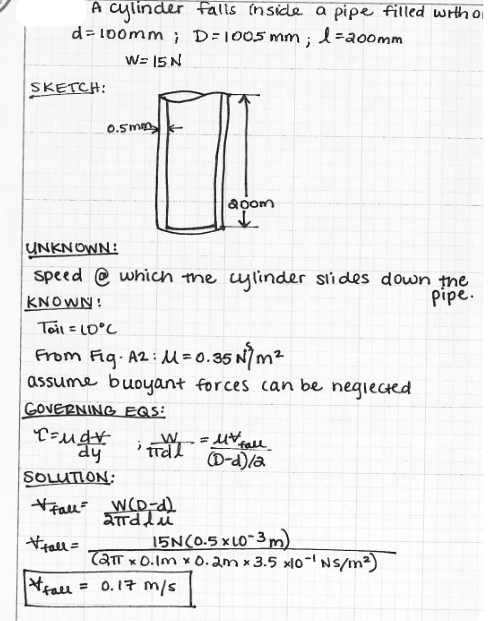 A cylinder falls inside a pipe filled with o
d=100mm ; D=100.5mm ; l=200mm
W=15N
SKETCH:
0.5mm
200m
UNKNOWN:
speed @ which the cylinder slides down the pipe.
KNOWN:
Toil = 10°C
From Fig. A2: μ = 0.35 Ns/m²
assume buoyant forces can be neglected
GOVERNING EQS:
τ=μ dV/dy ; W/πdl = μVfall/(D-d)/2
SOLUTION:
Vfall = W(D-d)/2πdlμ
Vfall = 15N(0.5 x10-³m)/(2π x 0.1m x 0.2m x 3.5 x10-¹ Ns/m²)
Vfall = 0.17 m/s